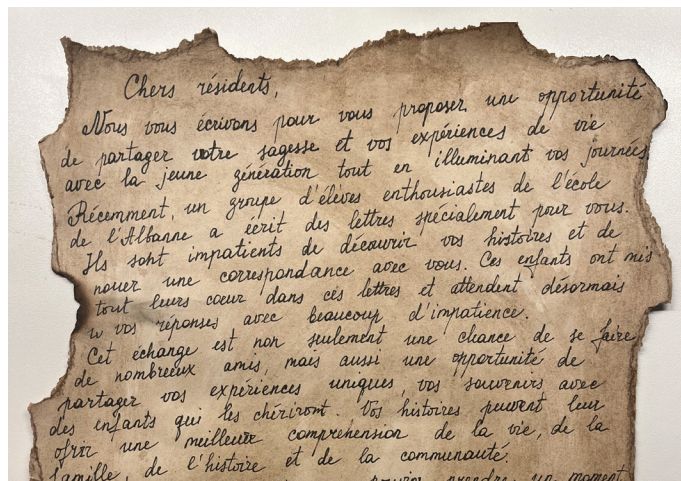 Chers résidents,
Nous vous écrivons pour vous proposer une opportunité
de partager votre sagesse et vos expériences de vie
avec la jeune génération tout en illuminant vos journées.
Récemment, un groupe d'élèves enthousiastes de l'école
de l'Albanne a écrit des lettres spécialement pour vous.
Ils sont impatients de découvrir vos histoires et de
nouer une correspondance avec vous. Ces enfants ont mis
tout leurs cœur dans ces lettres et attendent désormais
vos réponses avec beaucoup d'impatience.
Cet échange est non seulement une chance de se faire
de nombreux amis, mais aussi une opportunité de
partager vos expériences uniques, vos souvenirs avec
des enfants qui les chériront. Vos histoires peuvent leur
ofrir une meilleure compréhension de la vie, de la
famille, de l'histoire et de la communauté.
pouvoir prendre un moment